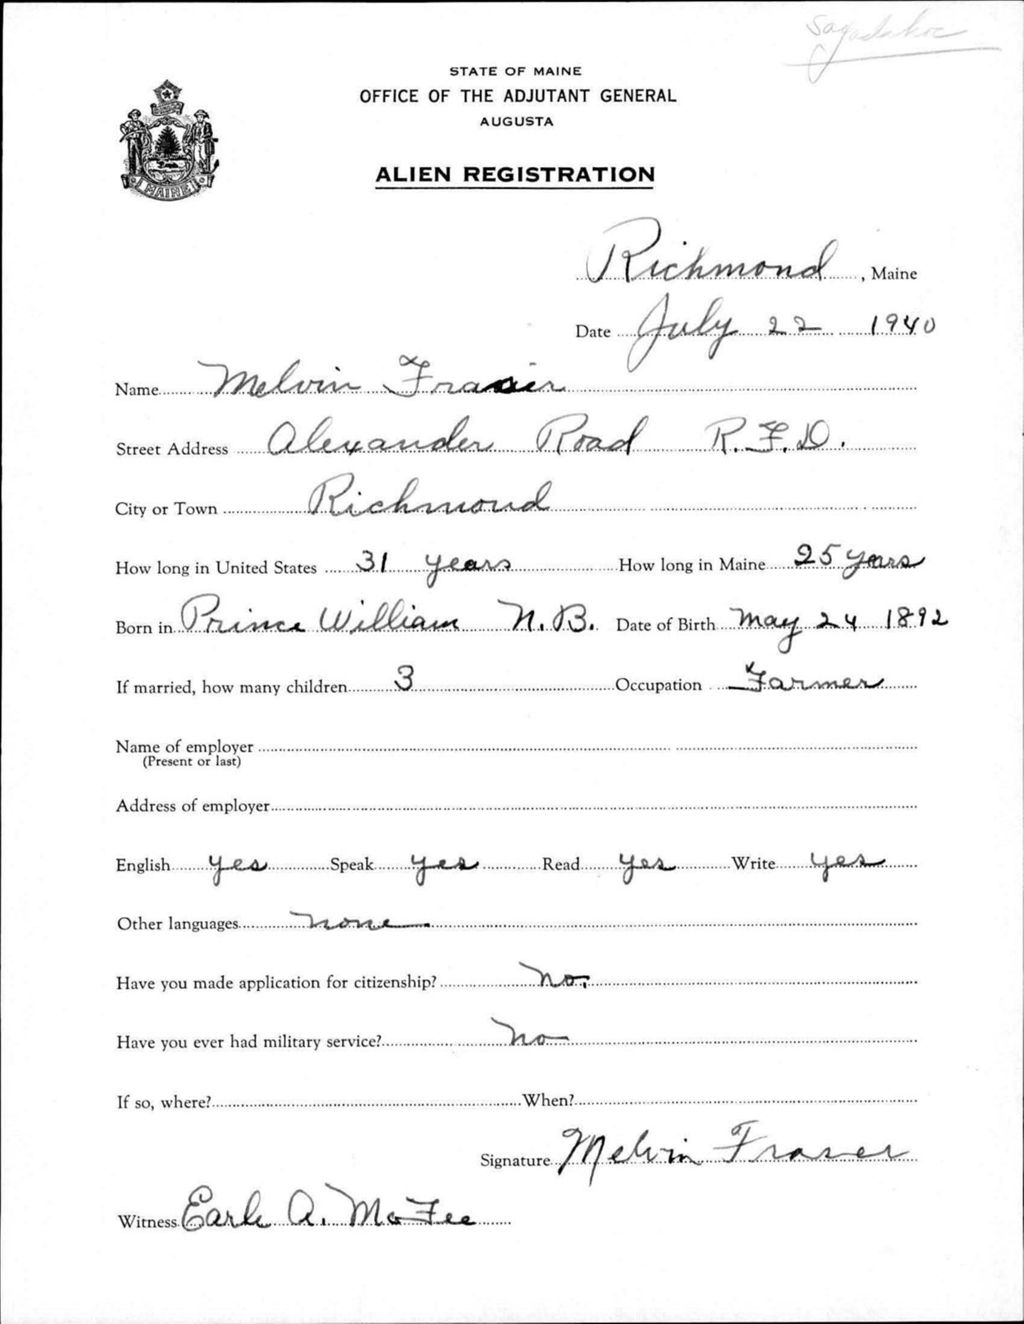 Sagadahoc
STATE OF MAINE
OFFICE OF THE ADJUTANT GENERAL
AUGUSTA
ALIEN REGISTRATION
MAINE
Richmond, Maine
Date July 22 1940
Name Melvin
Street Address Alexander Road R.F.D.
City or Town Richmond
How long in United States 31 years How long in Maine 25 years
Born in Prince William N.B. Date of Birth May 24 1892
If married, how many children 3 Occupation Farmer
Name of employer
(Present or last)
Address of employer
English yes Speak yes Read yes Write yes
Other languages none
Have you made application for citizenship? No.
Have you ever had military service? No
If so, where? When?
Signature Melvin Fraser
Witness Earle A. McFee